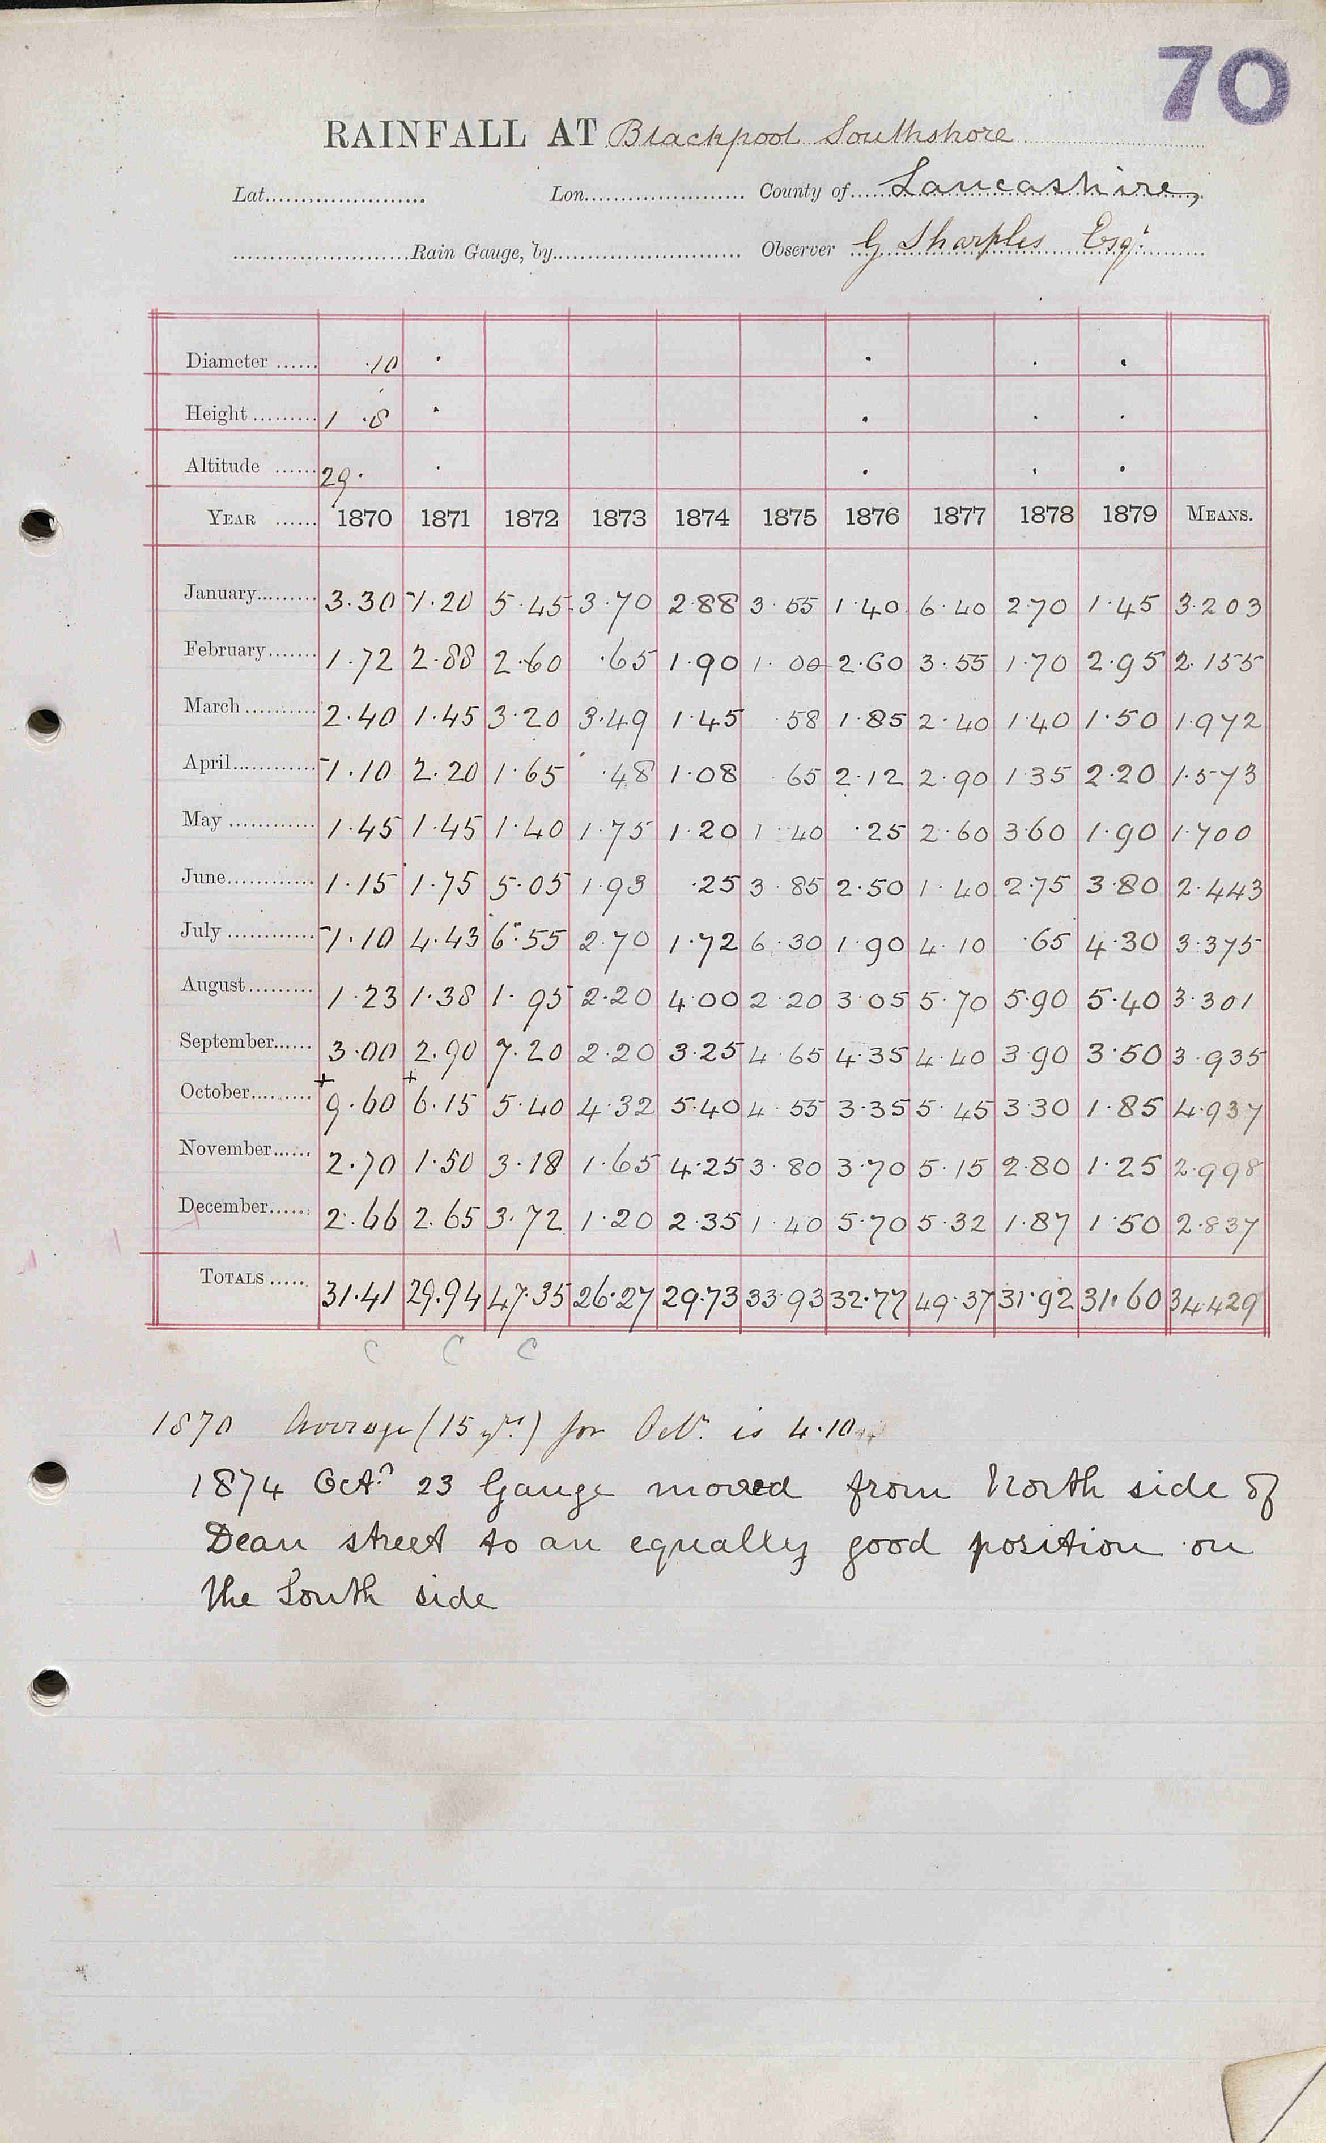 70
RAINFALL AT Blackpool Southshore
Lat. Lon. County of Lancashire,
Rain Gauge, by Observer G Sharples Esqr.
Diameter 10
Height 1 .8
Altitude 29.
YEAR 1870 1871 1872 1873 1874 1875 1876 1877 1878 1879 MEANS.
January 3.30 1.20 5.45 3.70 2.88 3.55 1.40 6.40 2.70 1.45 3.203
February 1.72 2.88 2.60 .65 1.90 1.00 2.60 3.55 1.70 2.95 2.155
March 2.40 1.45 3.20 3.49 1.45 .58 1.85 2.40 1.40 1.50 1.972
April 1.10 2.20 1.65 .48 1.08 65 2.12 2.90 1.35 2.20 1.573
May 1.45 1.45 1.40 1.75 1.20 1.40 .25 2.60 3.60 1.90 1.700
June 1.15 1.75 5.05 1.93 .25 3.85 2.50 1.40 2.75 3.80 2.443
July 1.10 4.43 6.55 2.70 1.72 6.30 1.90 4.10 .65 4.30 3.375
August 1.23 1.38 1.95 2.20 4.00 2.20 3.05 5.70 5.90 5.40 3.301
September 3.00 2.90 7.20 2.20 3.25 4.65 4.35 4.40 3.90 3.50 3.935
October +9.60 +6.15 5.40 4.32 5.40 4.55 3.35 5.45 3.30 1.85 4.937
November 2.70 1.50 3.18 1.65 4.25 3.80 3.70 5.15 2.80 1.25 2.998
December 2.66 2.65 3.72 1.20 2.35 1.40 5.70 5.32 1.87 1.50 2.837
TOTALS 31.41 29.94 47.35 26.27 29.73 33.93 32.77 49.37 31.92 31.60 34.429
C C C
1870 Average (15 yrs.) for Octr. is 4.10
1874 Octr 23 Gauge moved from North side of
Dean street to an equally good position on
the South side